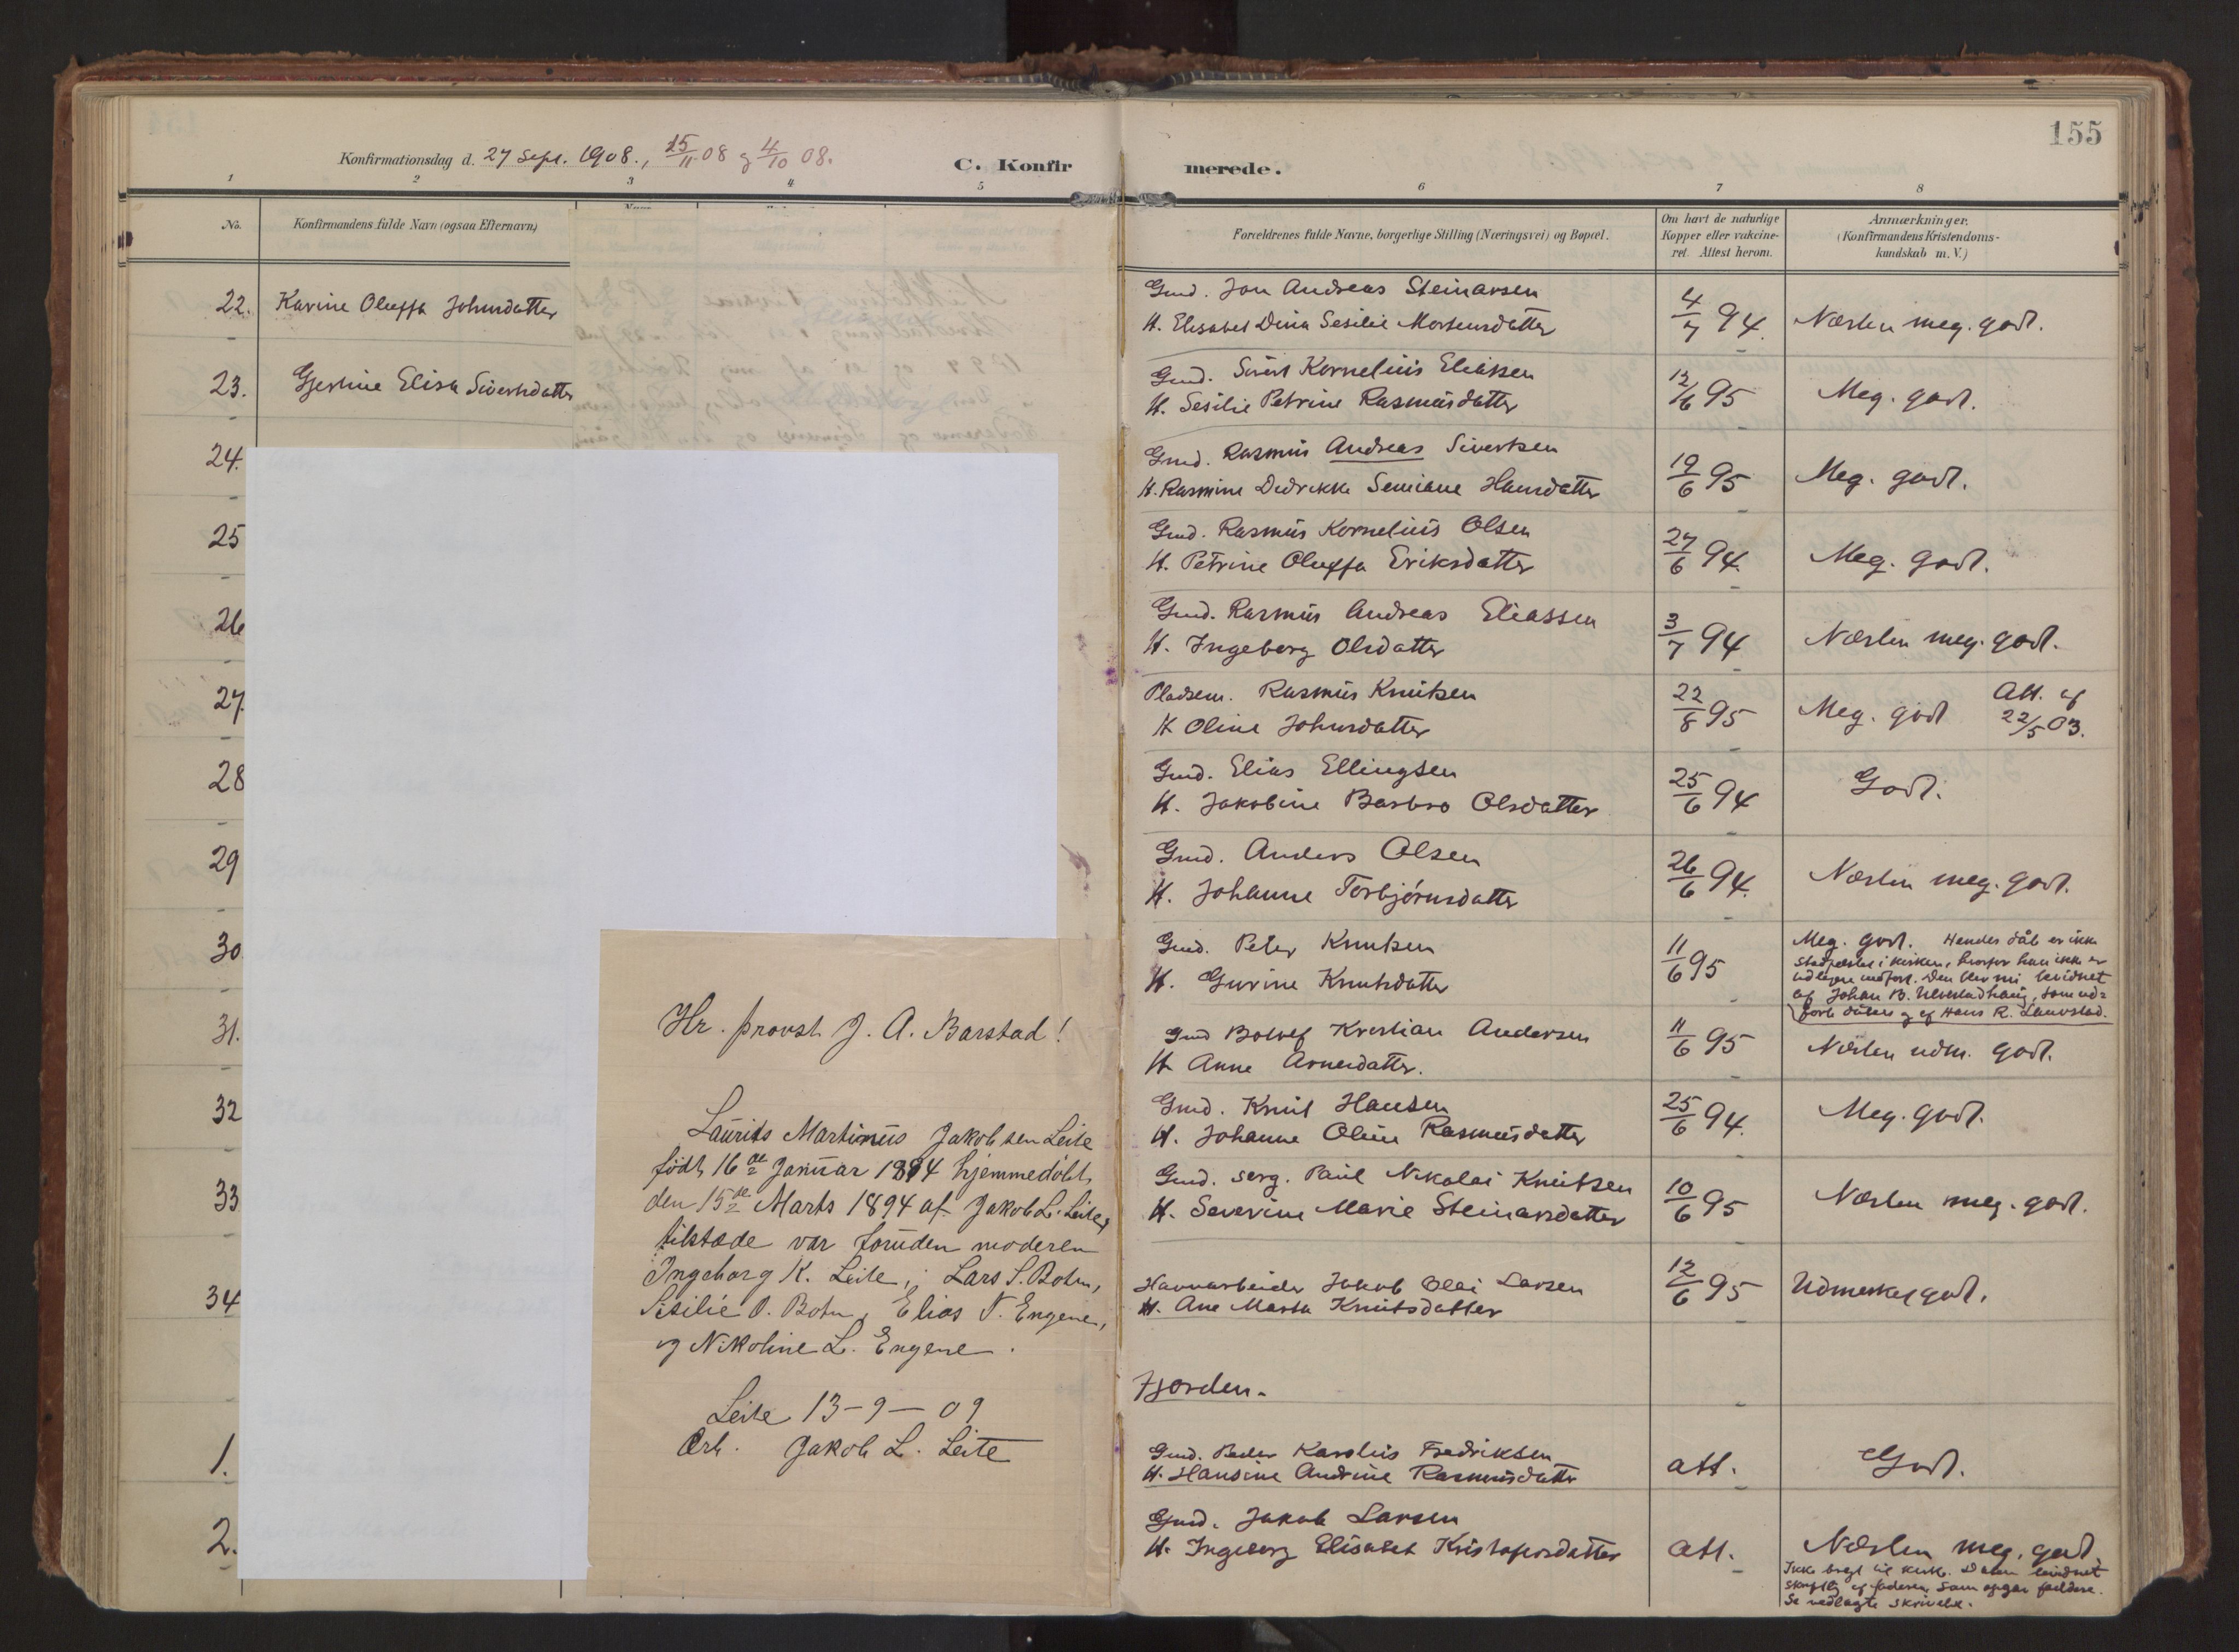 155
Konfirmationsdag d. 27 Sept. 1908., 25/11 08 og 4/10 08.
C. Konfirmerede.
1 2 3 4 5 6 7 8
No.
Konfirmandens fulde Navn (ogsaa Efternavn)
Forældrenes fulde Navne, borgerlige Stilling (Næringsvei) og Bopæl.
Om havt de naturlige
Kopper eller vakcine-
ret. Attest herom.
Anmærkninger.
(Konfirmandens Kristendoms-
kundskab m. V.)
22. Karine Oluffa Johnsdatter
Gmd. Jon Andreas Steinarsen
H. Elisabet Dina Sesilie Mortensdatter
4/7 94. Næsten meg. godt.
23. Gjertine Elisa Sivertsdatter
Gmd. Sivert Kornelius Eliassen
H. Sesilie Petrine Rasmusdatter
12/6 95 Meg. godt.
24.
Gmd. Rasmus Andreas Sivertsen
H. Rasmine Dedrikke Hansdatter
19/6 95 Meg. godt.
25
Gmd. Rasmus Kornelius Olsen
H. Petrine Oluffa Eriksdatter
27/6 94. Meg. godt.
26
Gmd. Rasmus Andreas Eliassen
H. Ingeborg Olsdatter
3/7 94 Næsten meg. godt.
27.
Pladsem. Rasmus Knutsen
H Oline Johnsdatter
22/8 95 Meg. godt Att. af
22/5 03.
28
Gmd. Elias Ellingsen
H. Jakobine Barbro Olsdatter
25/6 94 Godt.
29
Gmd. Anders Olsen
H. Johanne Torbjörnsdatter
26/6 94. Næsten meg. godt.
30
Gmd. Peter Knutsen
H. Gurine Knutsdatter
11/6 95
Meg. godt. Hendes dåb er ikke
stadfæstet i kirken, hvorfor hun ikke er
indført. Den blev nu bevidnet
af Johan B. som ud=
førte dåben og af Hans R.
31.
Gmd Botolf Kristian Andersen
H Anne Arnesdatter.
11/6 95 Næsten udm. godt.
32
Gmd. Knut Hansen
H. Johanne Oline Rasmusdatter
25/6 94. Meg. godt.
33
Gmd. serg. Paul Nikolai Knutsen
H. Severine Marie Steinarsdatter
10/6 95 Næsten meg. godt.
34
Havnarbeider Jakob Olai Larsen
H. Ane Marta Knutsdatter
12/6 95 Udmerket godt.
Fjorden.
1.
Gmd. Peder Karolius Fredriksen
H. Hansine Andrine Rasmusdatter
att. Godt.
2.
Gmd. Jakob Larsen
H. Ingeborg Elisabet Kristofersdatter
att. Næsten meg. godt.
Ikke bragt til kirke. Dåben bevidnet
skriftlig af faderen som opgav faddere.
Se vedlagte skrivelse.
Hr. provst J. A. Barstad!
Laurits Martinus Jakobsen Leite
født 16de Januar 1894 hjemmedöbt,
den 15de Marts 1894 af Jakob L. Leite,
tilstede var foruden moderen
Ingeborg K. Leite, Lars S. Botn,
Sesilie O. Botn, Elias T. Engene,
og Nikoline L. Engene.
Leite 13-9-09
Erb. Jakob L. Leite